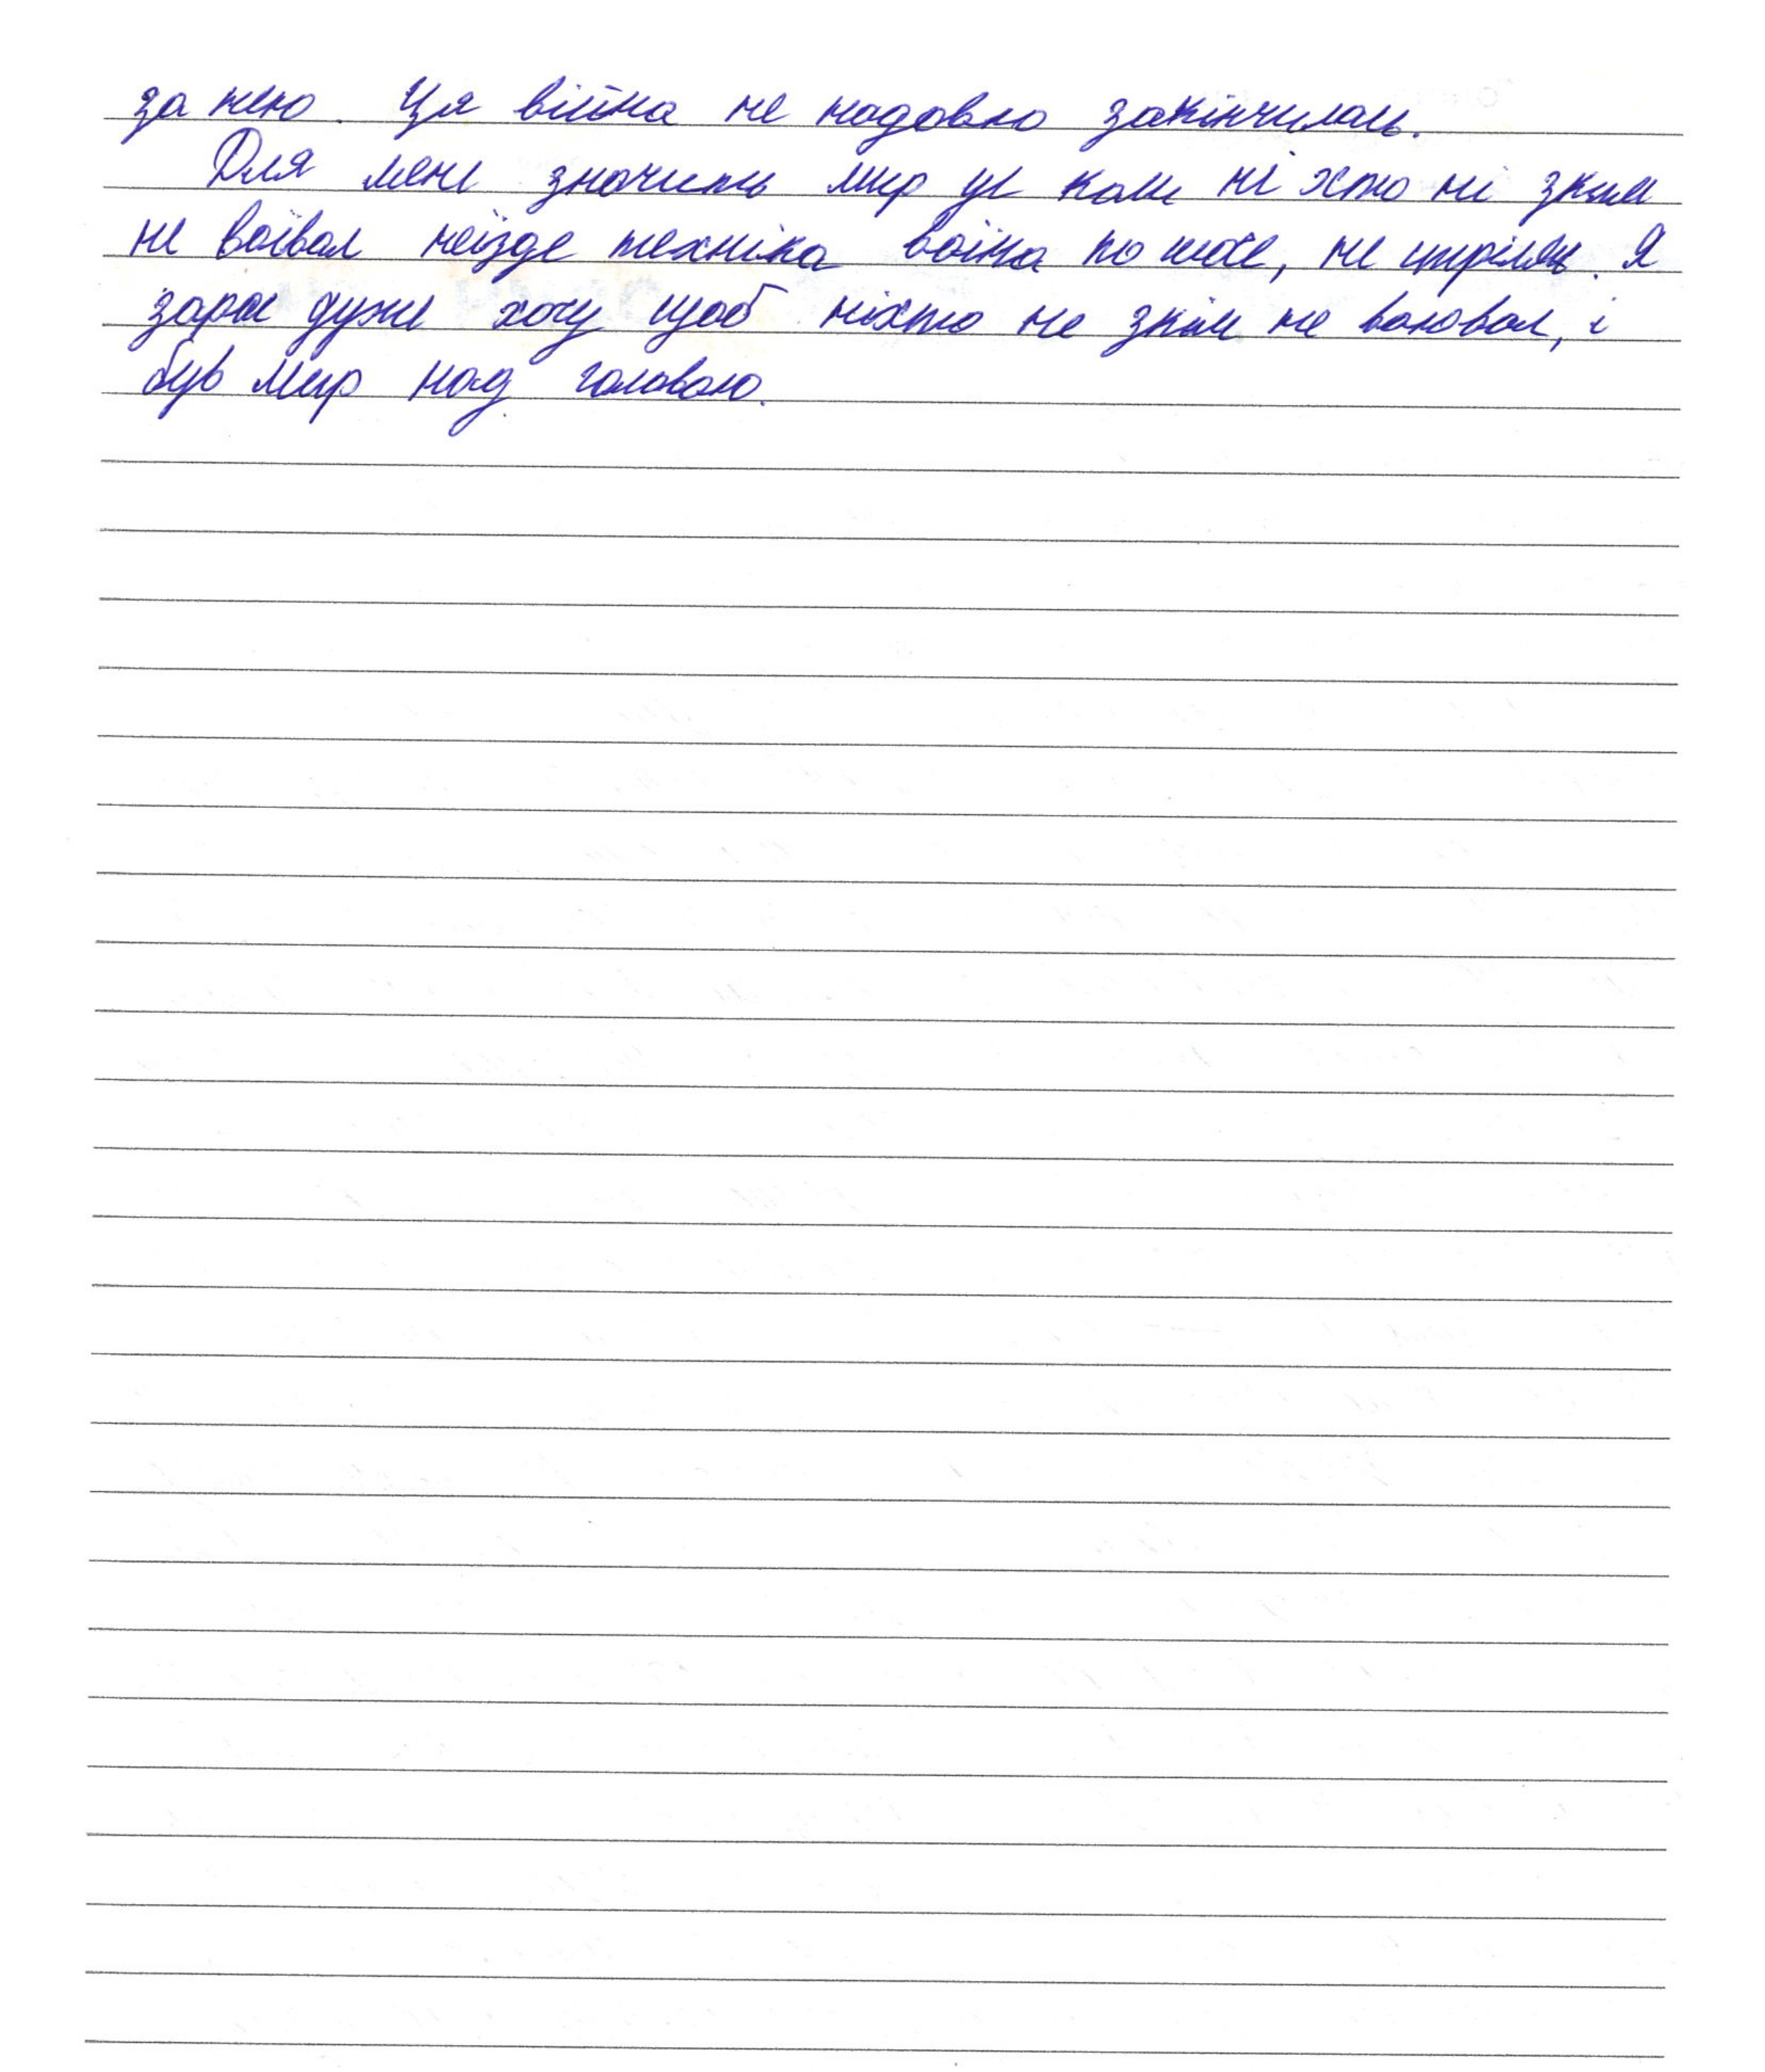 за нею. Ця війна не надовго закінчилась.
Для мене значить мир це коли ні хто ні зким
не воївал неїзде техніка воїна по шосе, не стріляє. Я
зараз дуже хочу щоб ніхто не зкім не воювал, і
був мир над головою.